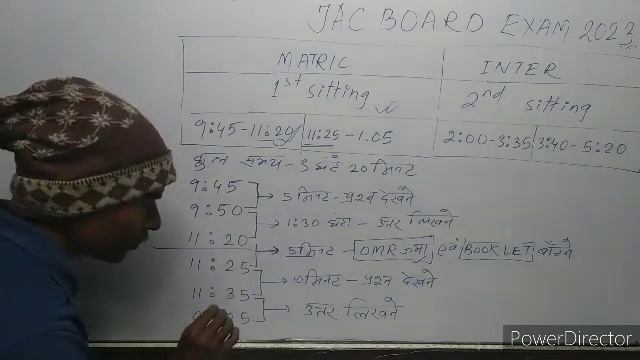 JAC BOARD EXAM 2023
MATRIC INTER
1st sitting 2nd sitting
9:45-11:20 11:25-1.05 2:00-3:35 3:40-5:20
कुल समय-3 घंटे 20 मिनट
9:45
→ 5 मिनट-प्रश्न देखने
9:50
→ 1:30 घंटा - उत्तर लिखने
11:20
→ 5 मिनट- OMR जमा एवं BOOKLET बाँटने
11:25
→ 10 मिनट - प्रश्न देखने
11:35
→ उत्तर लिखने
PowerDirector